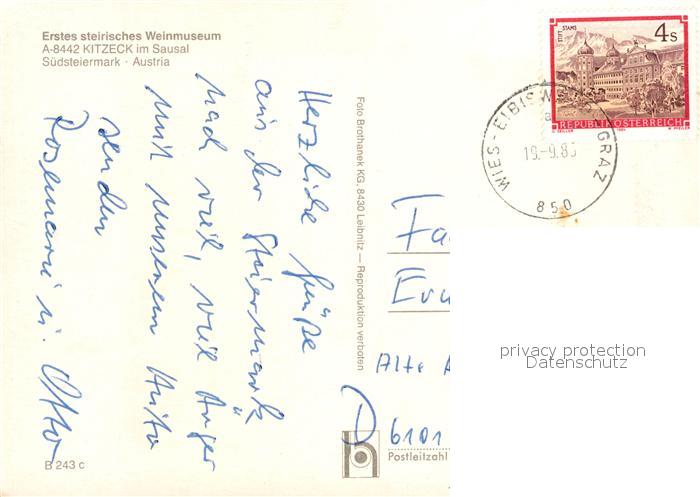 Erstes steirisches Weinmuseum
A-8442 KITZECK im Sausal
Südsteiermark · Austria
Herzliche Grüße
aus der Steiermark
nach viel, viel Ärger
mit unserem Auto
senden
Rosemarie u. Otto
B 243 c
Foto Brothanek KG, 8430 Leibnitz — Reproduktion verboten
STIFT STAMS
4s
REPUBLIK ÖSTERREICH
WIES-EIBISW
GRAZ
850
Alte
D
6101
Postleitzahl
privacy protection
Datenschutz